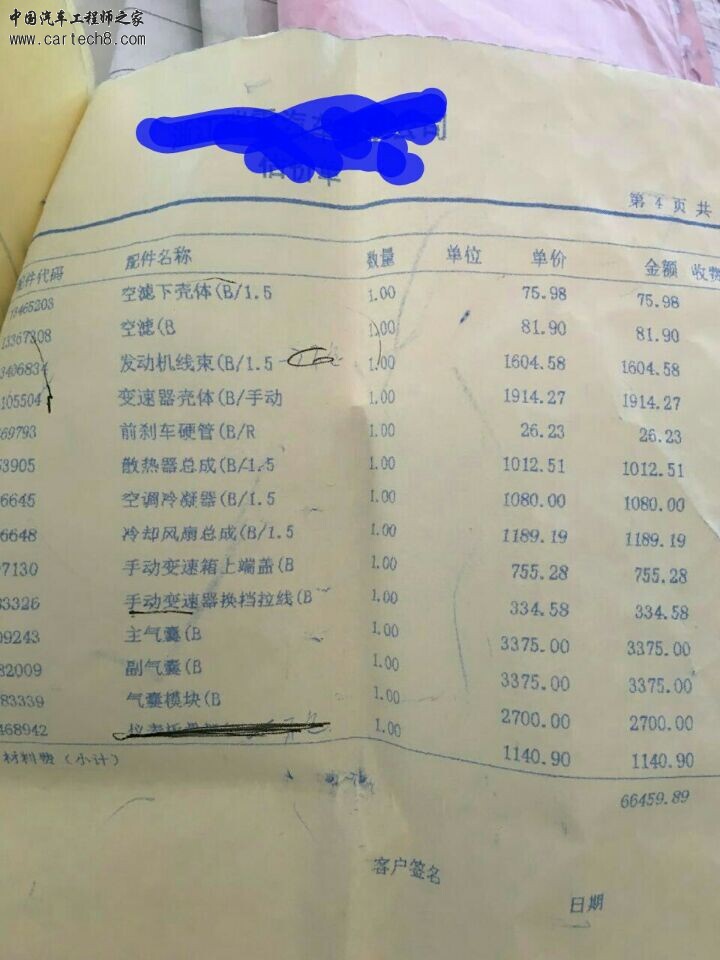 中国汽车工程师之家
www.cartech8.com
第 4 页 共
件代码 配件名称 数量 单位 单价 金额 收费
13465203 空滤下壳体(B/1.5 1.00 75.98 75.98
13367308 空滤(B 1.00 81.90 81.90
3406834 发动机线束(B/1.5 1.00 1604.58 1604.58
105504 变速器壳体(B/手动 1.00 1914.27 1914.27
69793 前刹车硬管(B/R 1.00 26.23 26.23
3905 散热器总成(B/1.5 1.00 1012.51 1012.51
6645 空调冷凝器(B/1.5 1.00 1080.00 1080.00
6648 冷却风扇总成(B/1.5 1.00 1189.19 1189.19
7130 手动变速箱上端盖(B 1.00 755.28 755.28
33326 手动变速器换档拉线(B 1.00 334.58 334.58
09243 主气囊(B 1.00 3375.00 3375.00
82009 副气囊(B 1.00 3375.00 3375.00
83339 气囊模块(B 1.00 2700.00 2700.00
468942 1.00 1140.90 1140.90
材料费(小计) 66459.89
客户签名
日期